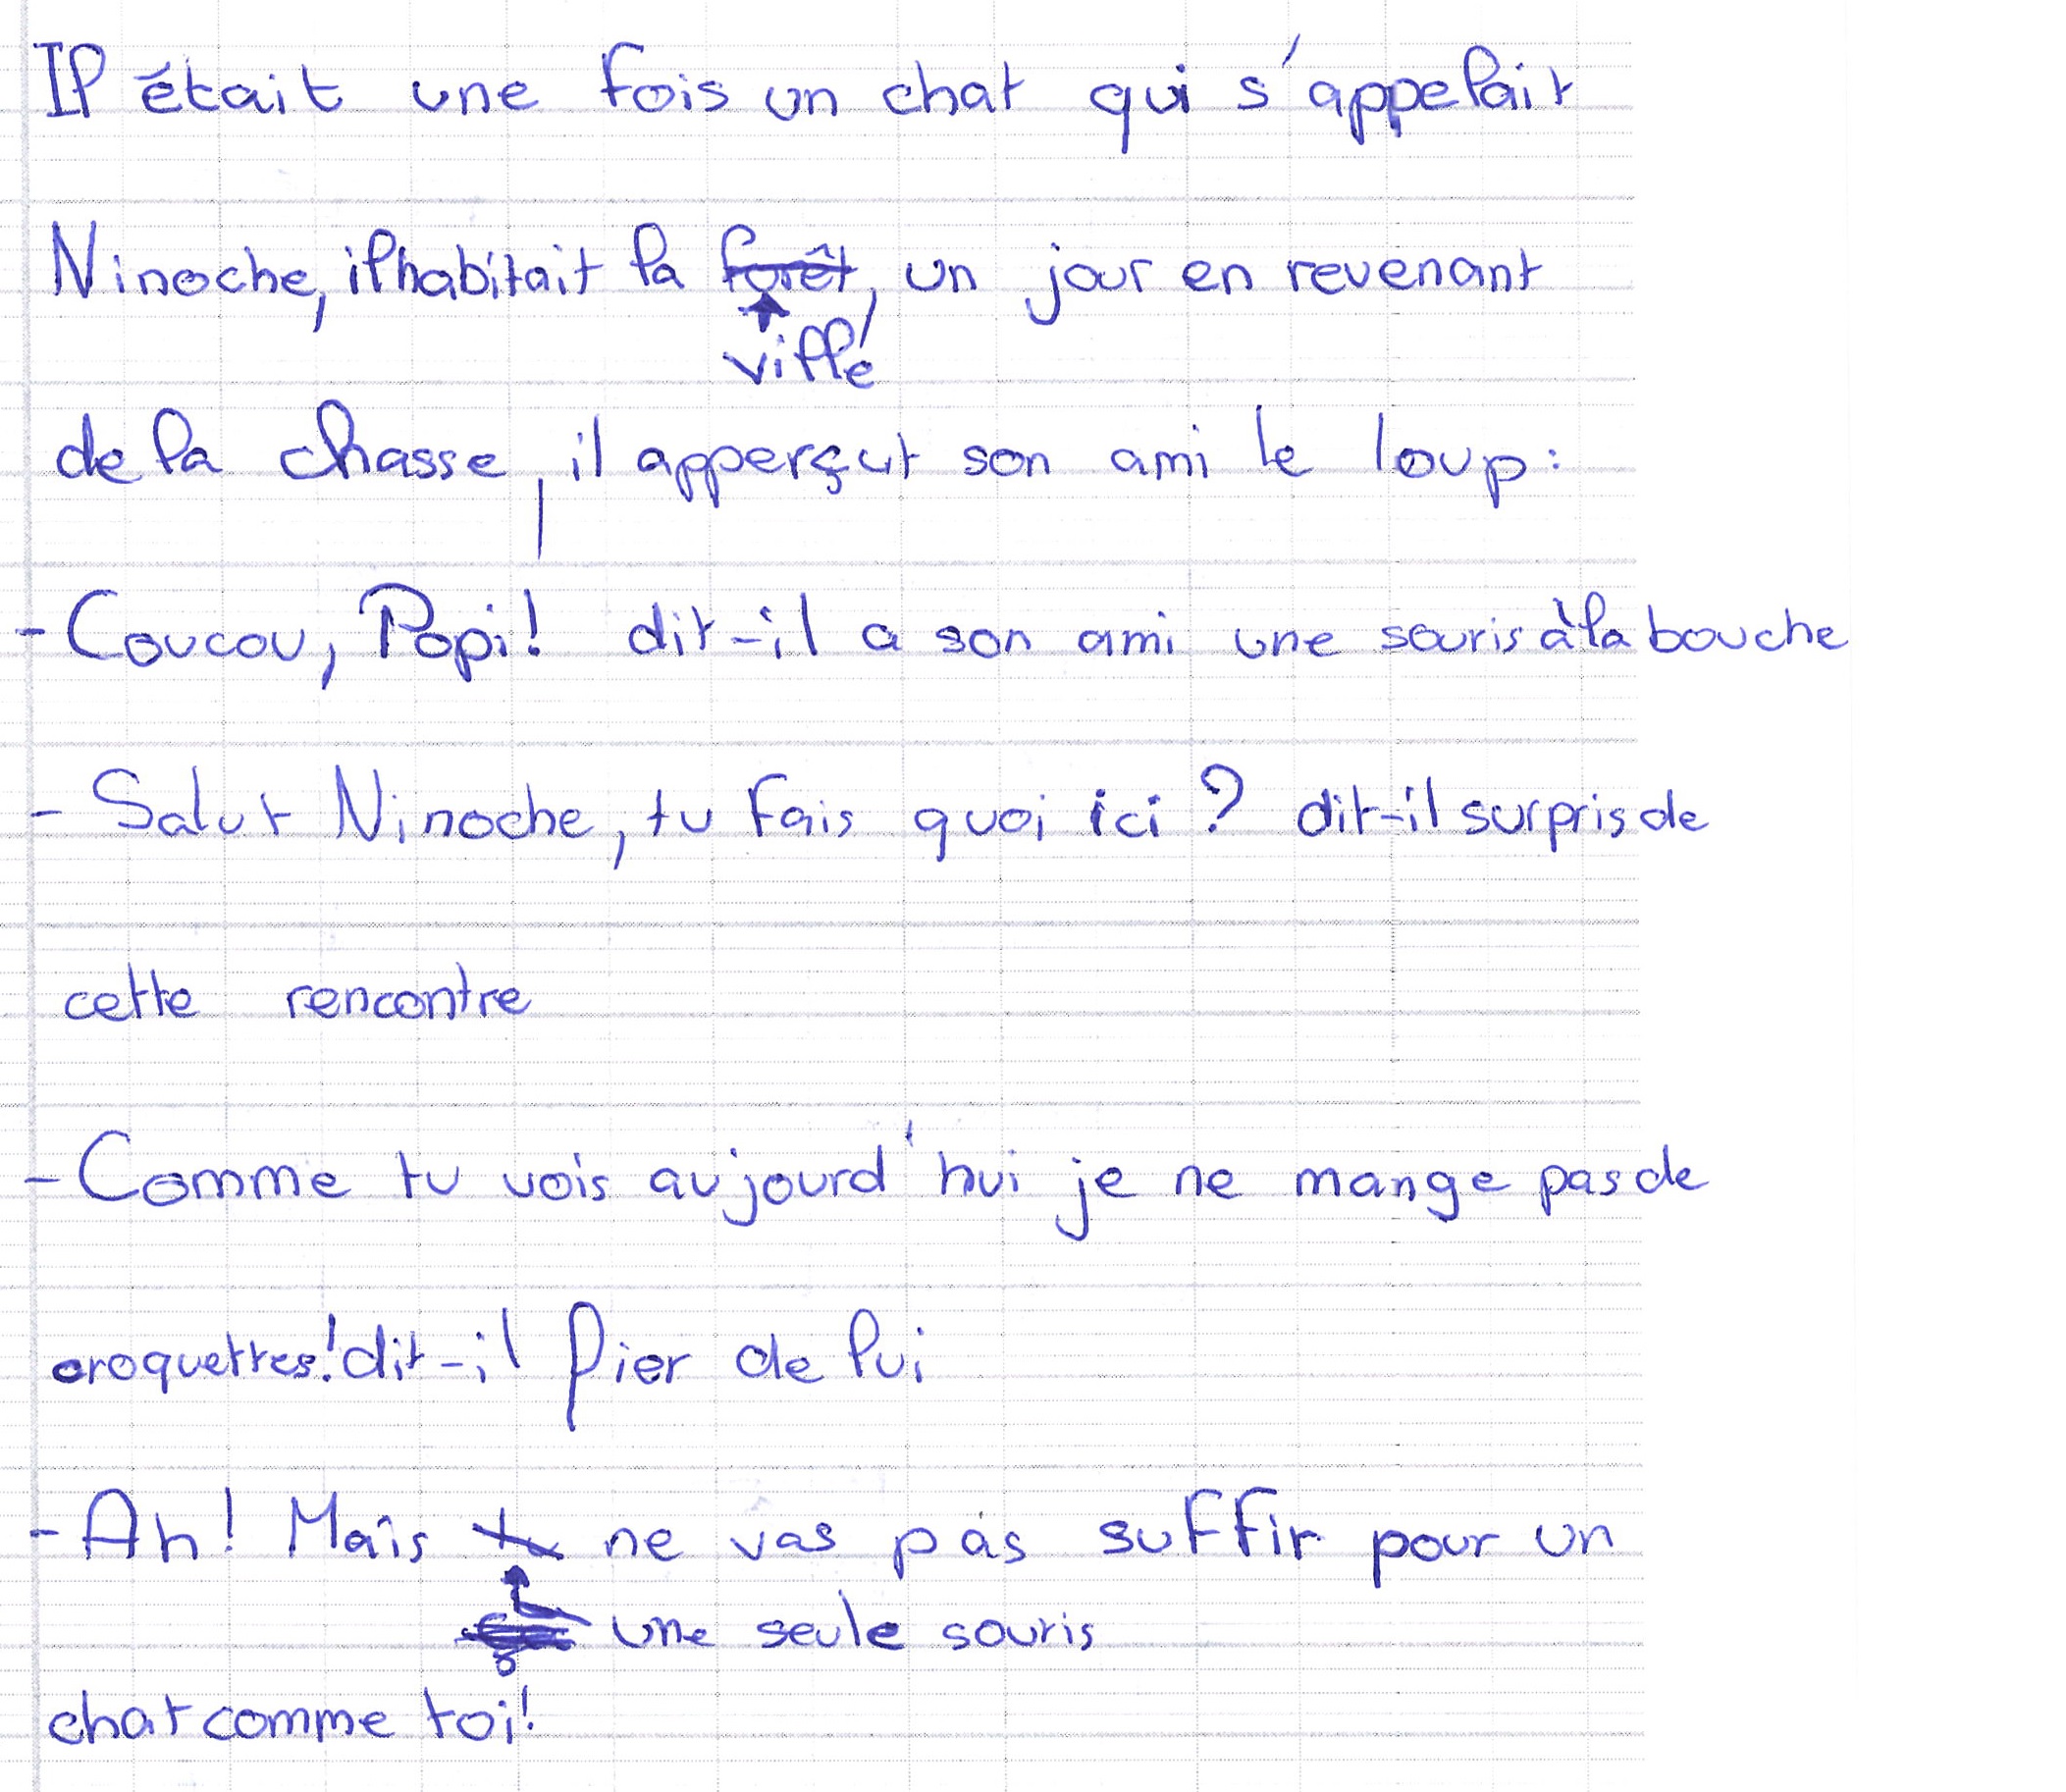 Il était une fois un chat qui s'appelait
Ninoche, il habitait la forêt, un jour en revenant
ville
de la chasse, il apperçut son ami le loup:
- Coucou, Popi! dit-il a son ami une souris à la bouche
- Salut Ninoche, tu fais quoi ici ? dit-il surpris de
cette rencontre
- Comme tu vois aujourd'hui je ne mange pas de
croquettes! dit-il fier de lui
- Ah! Mais tu ne vas pas suffir pour un
une seule souris
chat comme toi!